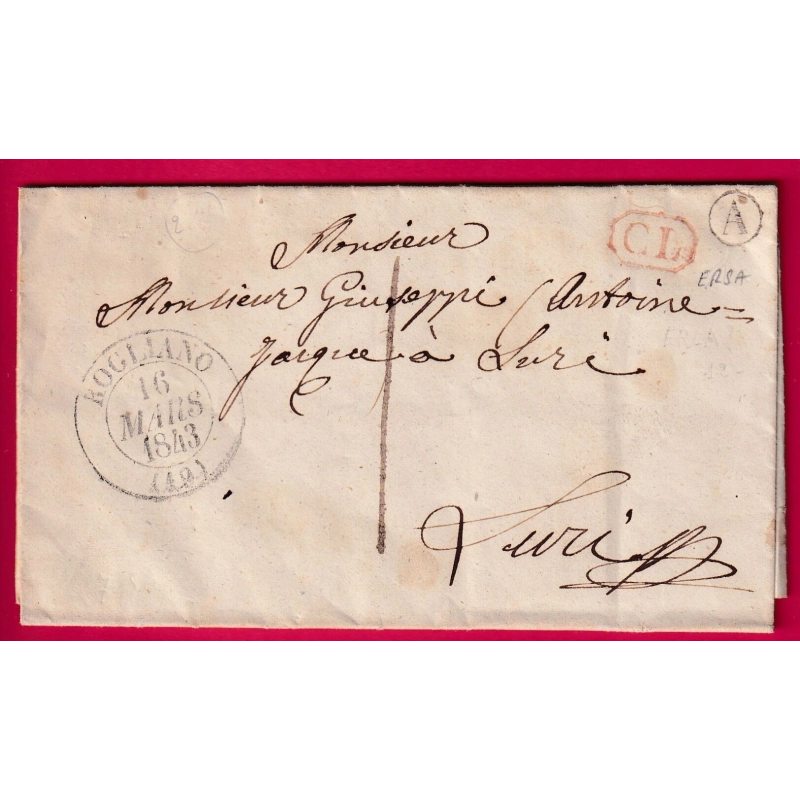 A
C.L.
ERSA
Monsieur
Monsieur Giuseppi Antoine=
Jacque à Luri
1
ROGLIANO
16
MARS
1843
(19)
Luri